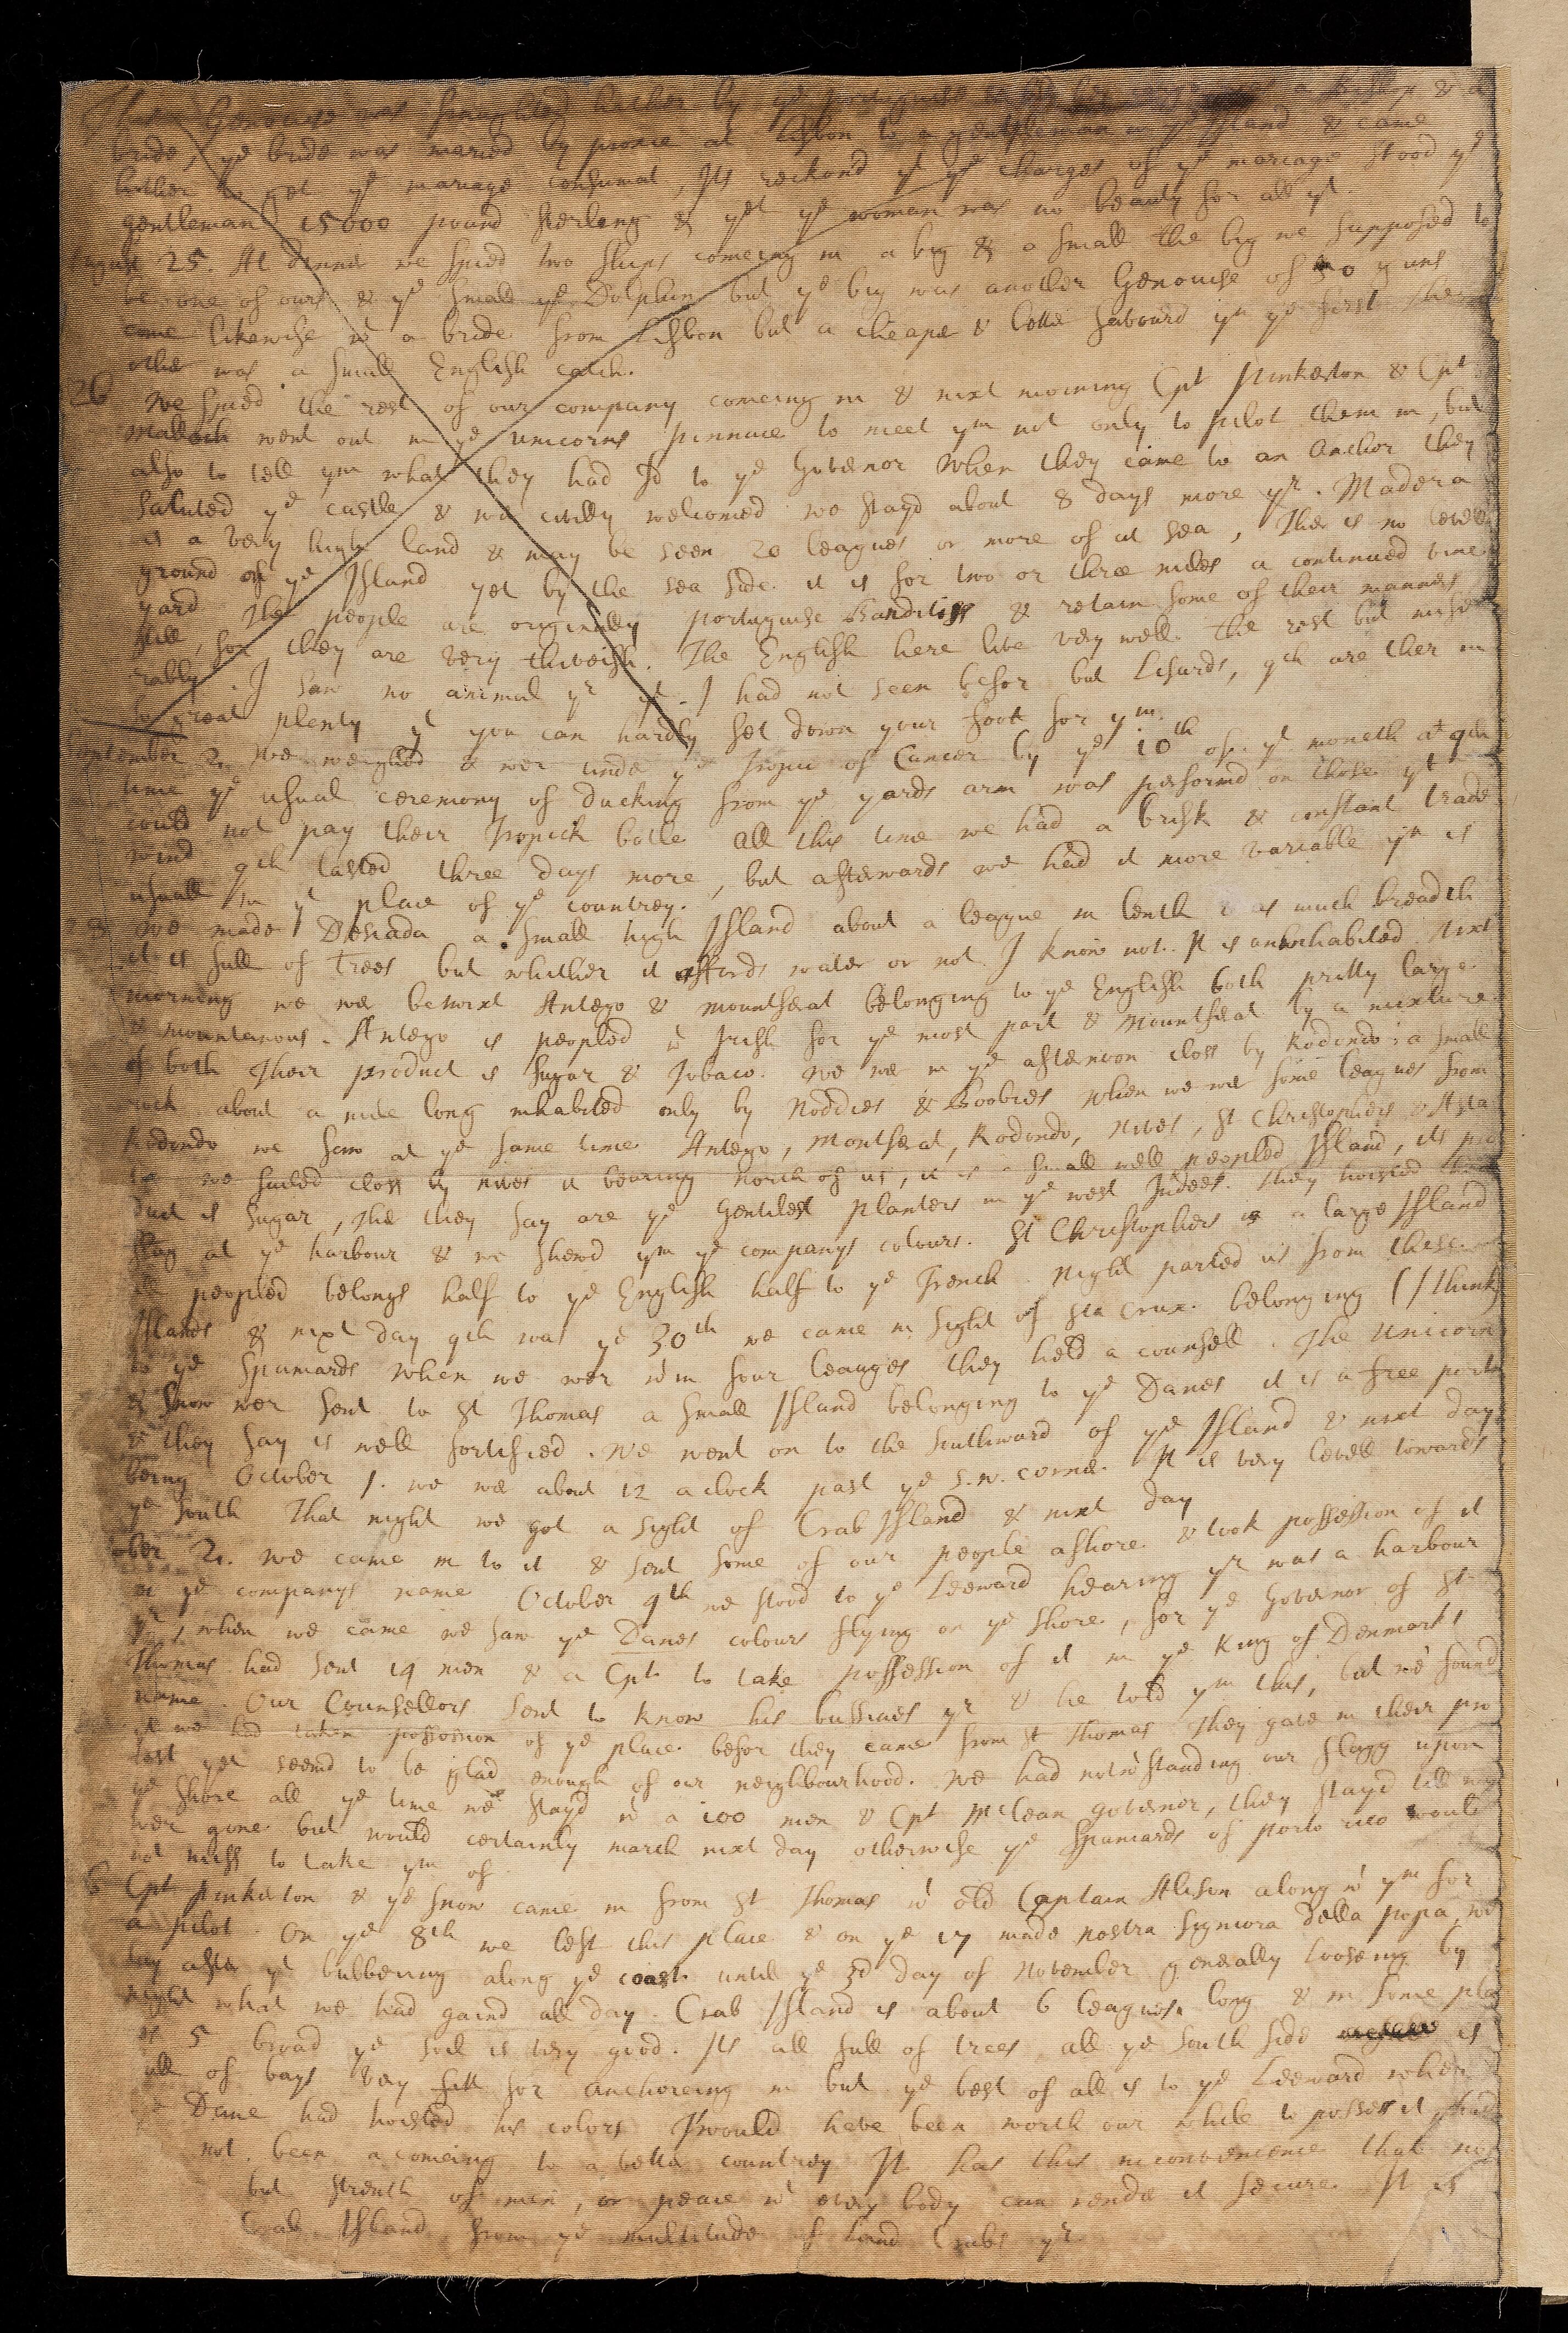 Genouise was fraughted hether by ye portuguise a Bishop & a
bride, ye bride was maried by proxie at Lisbon to a gentleman in ye Island & came
hither to get ye mariage consumat, Its reckond yt ye charges of ye mariage stood ye
gentleman 15000 pound sterling & yet ye woman was no beauty for all yt.
August 25. At dinner we spied two ships comeing in a big & a small the big we supposed to
be one of ours & ye small ye Dolphin but ye big was another Genouise of guns
come likewise wt a bride from Lisbon but a cheaper & better favourd yn ye first the
other was a small English catch.
26 We spied the rest of our company comeing in & next morning Cpt Pinkerton & Cpt
Malloch went out in ye unicorns pinnace to meet ym not only to pilot them in, but
also to tell ym what they had sd to ye Governor When they came to an anchor they
saluted ye castle & wer civilly welcomed we stayd about 8 days more yr. Madera
is a very high land & may be seen 20 leagues or more of at sea, Ther is no levell
ground of ye Island yet by the sea side it is for two or three miles a continued vine
yard The people are originally portuguise Banditiss & retain some of their manners
still, for they are very thiveish. The English here live very well. The rest but mise
rably. I saw no animal yr yt I had not seen befor but Lisards, qch are ther in
so great plenty yt you can hardly set down your foot for ym.
September 2. We weighed & wer under ye tropic of Cancer by ye 10th of ye moneth at qch
time ye usual ceremony of ducking from ye yards arm was performd on those yt
could not pay their Tropick botle All this time we had a brisk & constant trade
wind qch lasted three days more, but afterwards we had it more variable yn is
usuall in yt place of ye countrey.
28 we made Desiada a small high Island about a league in lenth & as much breadth
it is full of Trees but whither it affords water or not I know not. It is unhabited Next
morning we wer betwixt Antego & Mountserat belonging to ye English both pritty large
& mountainous. Antego is peopled wt Irish for ye most part & Mountserat by a mixture
of both Their product is Sugar & Tobaco. We wer in ye afternoon closs by Rodondo: a small
rock about a mile long inhabited only by Noddies & Boobies When we wer some leagues from
Rodondo we saw at ye same time Antego, Montserat, Rodondo, Nives, St Christophers & Asta
we sailed closs by Nives it bearing north of us, it is a small well peopled Island, its pro
duct is Sugar, The they say are ye Gentilest planters in ye west Indees. they hoisted their
flag at ye harbour & we shewd ym ye companys colours. St Christophers is a large Island
peopled belongs half to ye English half to ye French. Night parted us from these
Islands & next day qch was ye 30th we came in sight of Sta Crux. belonging (I think)
to ye Spaniards When we wer wtin four leauges they held a counsell. The Unicorn
& Snow wer sent to St Thomas a small Island belonging to ye Danes it is a free port
& they say is well fortified. We went on to the Southward of ye Island & next day
being October 1. we wer about 12 a clock past ye S.W. corner. It is very levell towards
ye South That night we got a sight of Crab Island & next day
October 2. We came in to it & sent some of our people ashore & took possession of it
in ye companys name. October 4th we stood to ye Leeward hearing yr was a harbour
yr, when we came we saw ye Danes colours flying on ye shore, for ye Governor of St
Thomas had sent 14 men & a Cpt to take possession of it in ye King of Denmarks
name. Our Counsellors sent to know his bussines yr & he told ym this, but we found
yt we had taken possession of ye place befor they came from St Thomas They gave in their pro
test yet seemd to be glad enough of our neighbourhood. We had notwtstanding our flagg upon
ye shore all ye time we stayd wt a 100 men & Cpt McLean Governor, they stayd till we
wer gone but would certainly march next day otherwise ye Spaniards of porto rico would
not miss to take ym of
6 Cpt Pinkerton & ye Snow came in from St Thomas wt old Captain Alison along wt ym for
a pilot. On ye 8th we left this place & on ye 17 made Nostra Signiora della popa, we
lay after yt bubbering along ye coast until ye 3d day of November generally looseing by
night what we had gaind all day. Crab Island is about 6 leagues long & in some pla
ces 5 broad ye soil is very good. Its all full of trees, all ye South side is
all of bays very fitt for anchoreing in but ye best of all is to ye Leeward wher
ye Dane had hoisted his colors I would have been worth our while to possess it
not been a comeing to a better countrey It has this inconvenience that no
but strenth of men, or peace wt every body can render it secure. It is
Crab Island from ye multitude of Land Crabs yr